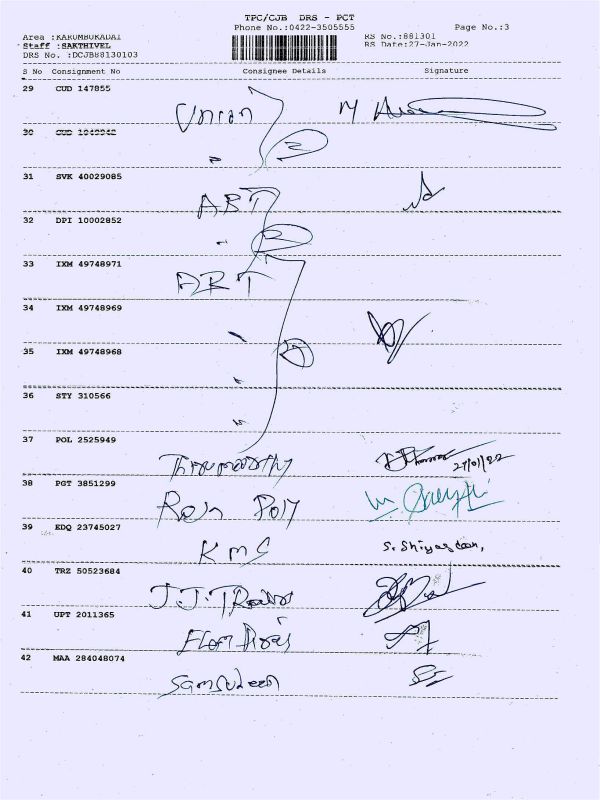 TPC/CJB DRS - PCT
Phone No.:0422-3505555
Page No.:3
Area :KARUMBUKADAI
Staff :SAKTHIVEL
DRS No. :DCJB88130103
RS No.:881301
RS Date:27-Jan-2022
S No Consignment No Consignee Details Signature
29 CUD 147855
Union
30 CUD
2
31 SVK 40029085
ABT
32 DPI 10002852
2
33 IXM 49748971
ABT
34 IXM 49748969
35 IXM 49748968
36 STY 310566
37 POL 2525949
27/01/22
38 PGT 3851299
Poly
39 EDQ 23745027
KMS S. Shiyasdeen,
40 TRZ 50523684
J.J. Traders
41 UPT 2011365
42 MAA 284048074
Samsudeen